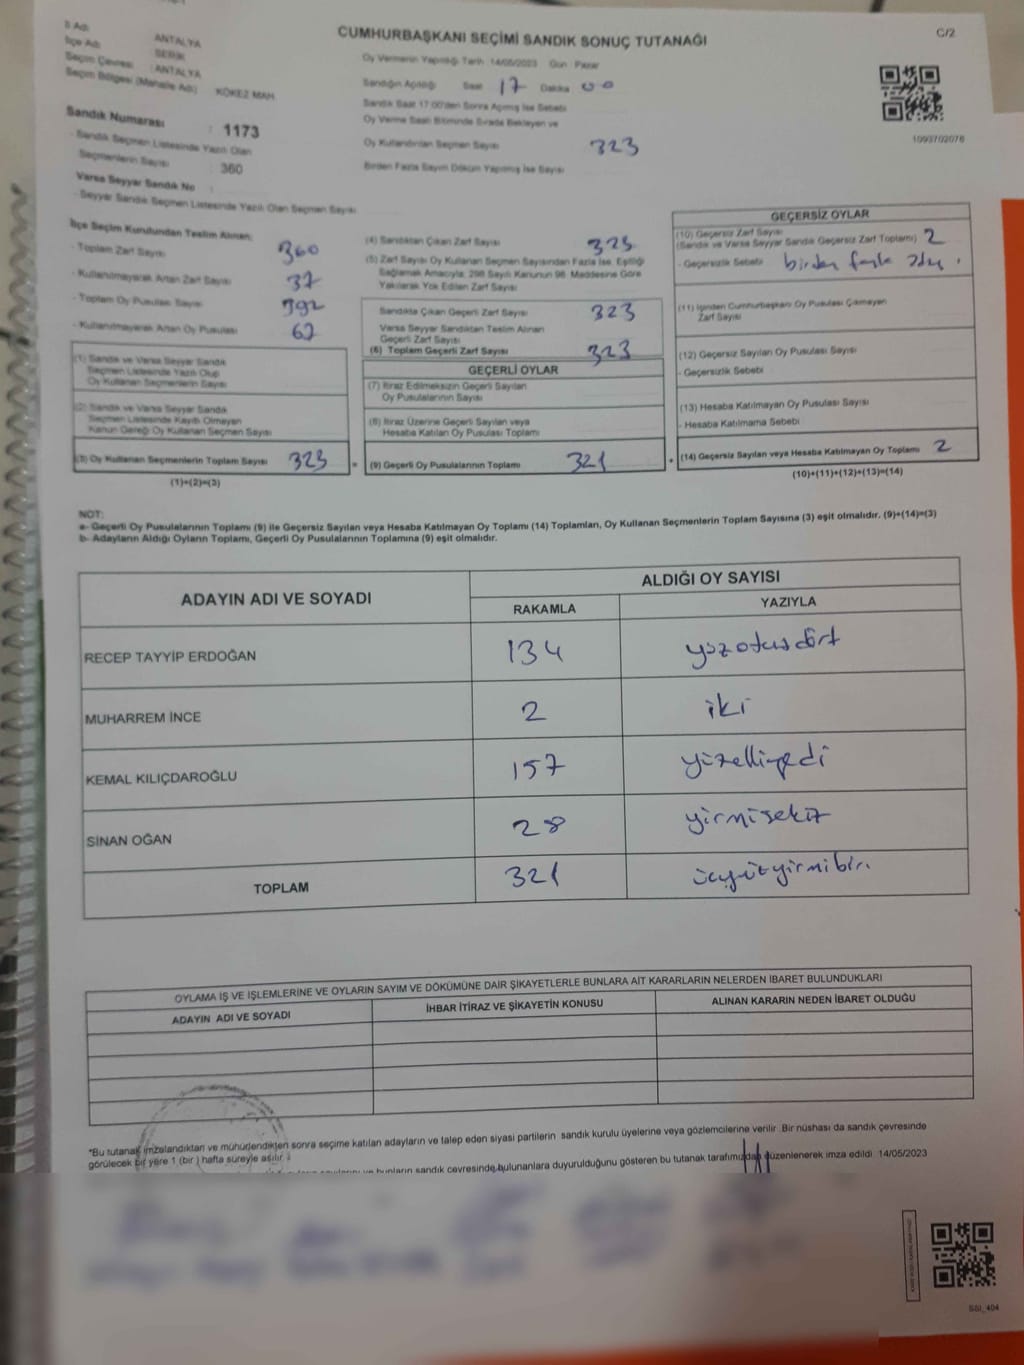 C/2
CUMHURBAŞKANI SEÇİMİ SANDIK SONUÇ TUTANAĞI
İl Adı ANTALYA
İlçe Adı SERİK
Seçim Çevresi : ANTALYA
Seçim Bölgesi (Mahalle Adı) KÖKEZ MAH.
Sandık Numarası : 1173
- Sandık Seçmen Listesinde Yazılı Olan
Seçmenlerin Sayısı : 360
Varsa Seyyar Sandık No :
- Seyyar Sandık Seçmen Listesinde Yazılı Olan Seçmen Sayısı
Oy Vermenin Yapıldığı Tarih 14/05/2023 Gün : Pazar
Sandığın Açıldığı Saat 17 Dakika 00
Sandık Saat 17.00'den Sonra Açılmış İse Sebebi
Oy Verme Saati Bitiminde Sırada Bekleyen ve
Oy Kullandırılan Seçmen Sayısı 323
Birden Fazla Sayım Döküm Yapılmış İse Sayısı
1093702076
İlçe Seçim Kurulundan Teslim Alınan;
- Toplam Zarf Sayısı 360
- Kullanılmayarak Artan Zarf Sayısı 37
- Toplam Oy Pusulası Sayısı 392
- Kullanılmayarak Artan Oy Pusulası
(1) Sandık ve Varsa Seyyar Sandık
Seçmen Listesinde Yazılı Olup
Oy Kullanan Seçmenlerin Sayısı
(2) Sandık ve Varsa Seyyar Sandık
Seçmen Listesinde Kayıtlı Olmayan
Kanun Gereği Oy Kullanan Seçmen Sayısı
(3) Oy Kullanan Seçmenlerin Toplam Sayısı 323
(1)+(2)=(3)
(4) Sandıktan Çıkan Zarf Sayısı 323
(5) Zarf Sayısı Oy Kullanan Seçmen Sayısından Fazla İse, Eşitliği
Sağlamak Amacıyla, 298 Sayılı Kanunun 98. Maddesine Göre
Yakılarak Yok Edilen Zarf Sayısı
Sandıkta Çıkan Geçerli Zarf Sayısı 323
Varsa Seyyar Sandıktan Teslim Alınan
Geçerli Zarf Sayısı
(6) Toplam Geçerli Zarf Sayısı 323
GEÇERLİ OYLAR
(7) İtiraz Edilmeksizin Geçerli Sayılan
Oy Pusulalarının Sayısı
(8) İtiraz Üzerine Geçerli Sayılan veya
Hesaba Katılan Oy Pusulası Toplamı
= (9) Geçerli Oy Pusulalarının Toplamı 321
GEÇERSİZ OYLAR
(10) Geçersiz Zarf Sayısı
(Sandık ve Varsa Seyyar Sandık Geçersiz Zarf Toplamı) 2
- Geçersizlik Sebebi birden fazla
(11) İçinden Cumhurbaşkanı Oy Pusulası Çıkmayan
Zarf Sayısı
(12) Geçersiz Sayılan Oy Pusulası Sayısı
- Geçersizlik Sebebi
(13) Hesaba Katılmayan Oy Pusulası Sayısı
- Hesaba Katılmama Sebebi
+ (14) Geçersiz Sayılan veya Hesaba Katılmayan Oy Toplamı 2
(10)+(11)+(12)+(13)=(14)
NOT:
a- Geçerli Oy Pusulalarının Toplamı (9) ile Geçersiz Sayılan veya Hesaba Katılmayan Oy Toplamı (14) Toplamları, Oy Kullanan Seçmenlerin Toplam Sayısına (3) eşit olmalıdır. (9)+(14)=(3)
b- Adayların Aldığı Oyların Toplamı, Geçerli Oy Pusulalarının Toplamına (9) eşit olmalıdır.
ADAYIN ADI VE SOYADI ALDIĞI OY SAYISI
RAKAMLA YAZIYLA
RECEP TAYYİP ERDOĞAN 134 yüzotuzdört
MUHARREM İNCE 2 iki
KEMAL KILIÇDAROĞLU 157 yüzelliyedi
SİNAN OĞAN 28 yirmisekiz
TOPLAM 321 üçyüzyirmibir.
OYLAMA İŞ VE İŞLEMLERİNE VE OYLARIN SAYIM VE DÖKÜMÜNE DAİR ŞİKAYETLERLE BUNLARA AİT KARARLARIN NELERDEN İBARET BULUNDUKLARI
ADAYIN ADI VE SOYADI İHBAR İTİRAZ VE ŞİKAYETİN KONUSU ALINAN KARARIN NEDEN İBARET OLDUĞU
*Bu tutanak imzalandıktan ve mühürlendikten sonra seçime katılan adayların ve talep eden siyasi partilerin sandık kurulu üyelerine veya gözlemcilerine verilir. Bir nüshası da sandık çevresinde
görülecek bir yere 1 (bir) hafta süreyle asılır.
bunların sandık çevresinde bulunanlara duyurulduğunu gösteren bu tutanak tarafımızdan düzenlenerek imza edildi. 14/05/2023
SSI_404